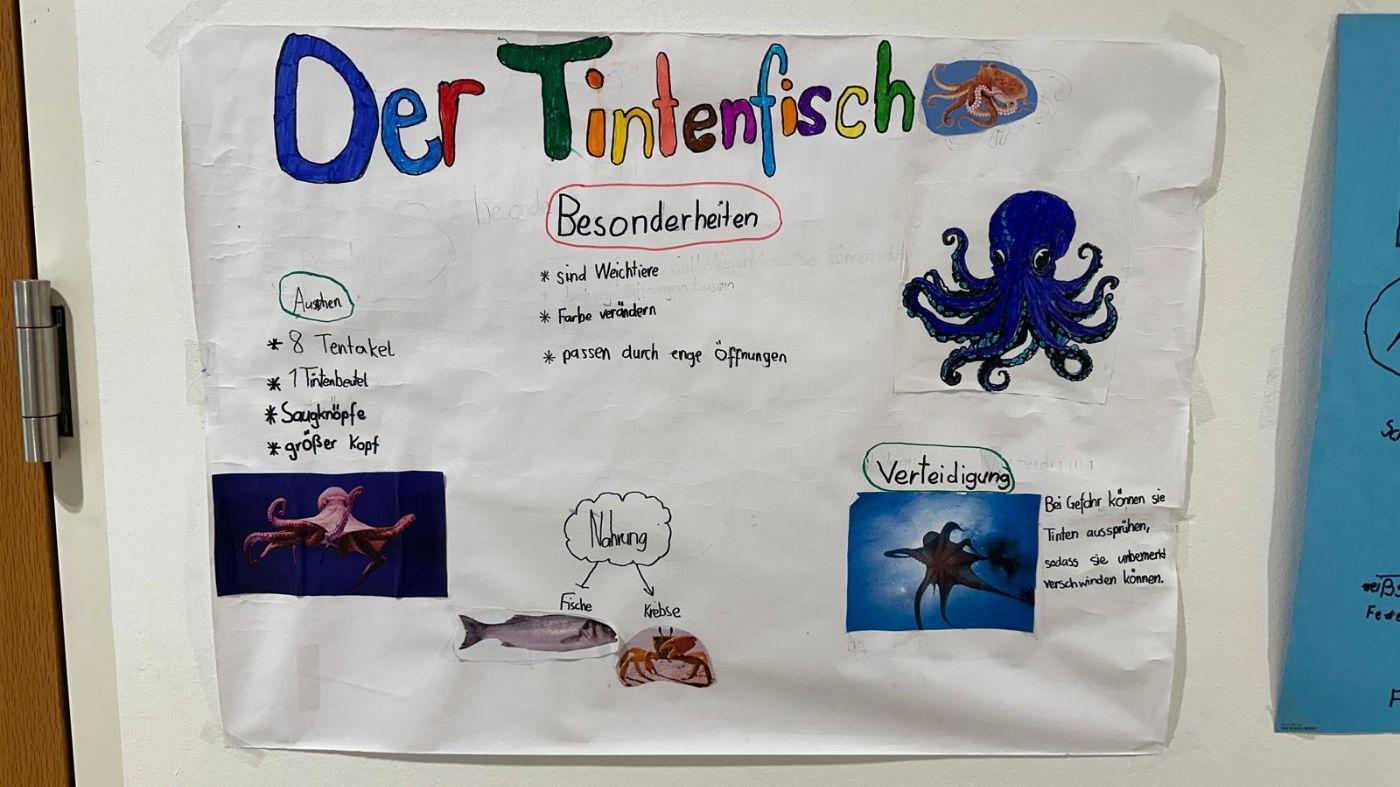 Der Tintenfisch
Besonderheiten
* sind Weichtiere
* Farbe verändern
* passen durch enge Öffnungen
Aussehen
* 8 Tentakel
* 1 Tintenbeutel
* Saugknöpfe
* größer Kopf
Nahrung
Fische
Krebse
Verteidigung
Bei Gefahr können sie
Tinten aussprühen,
sodass sie unbemerkt
verschwinden können.